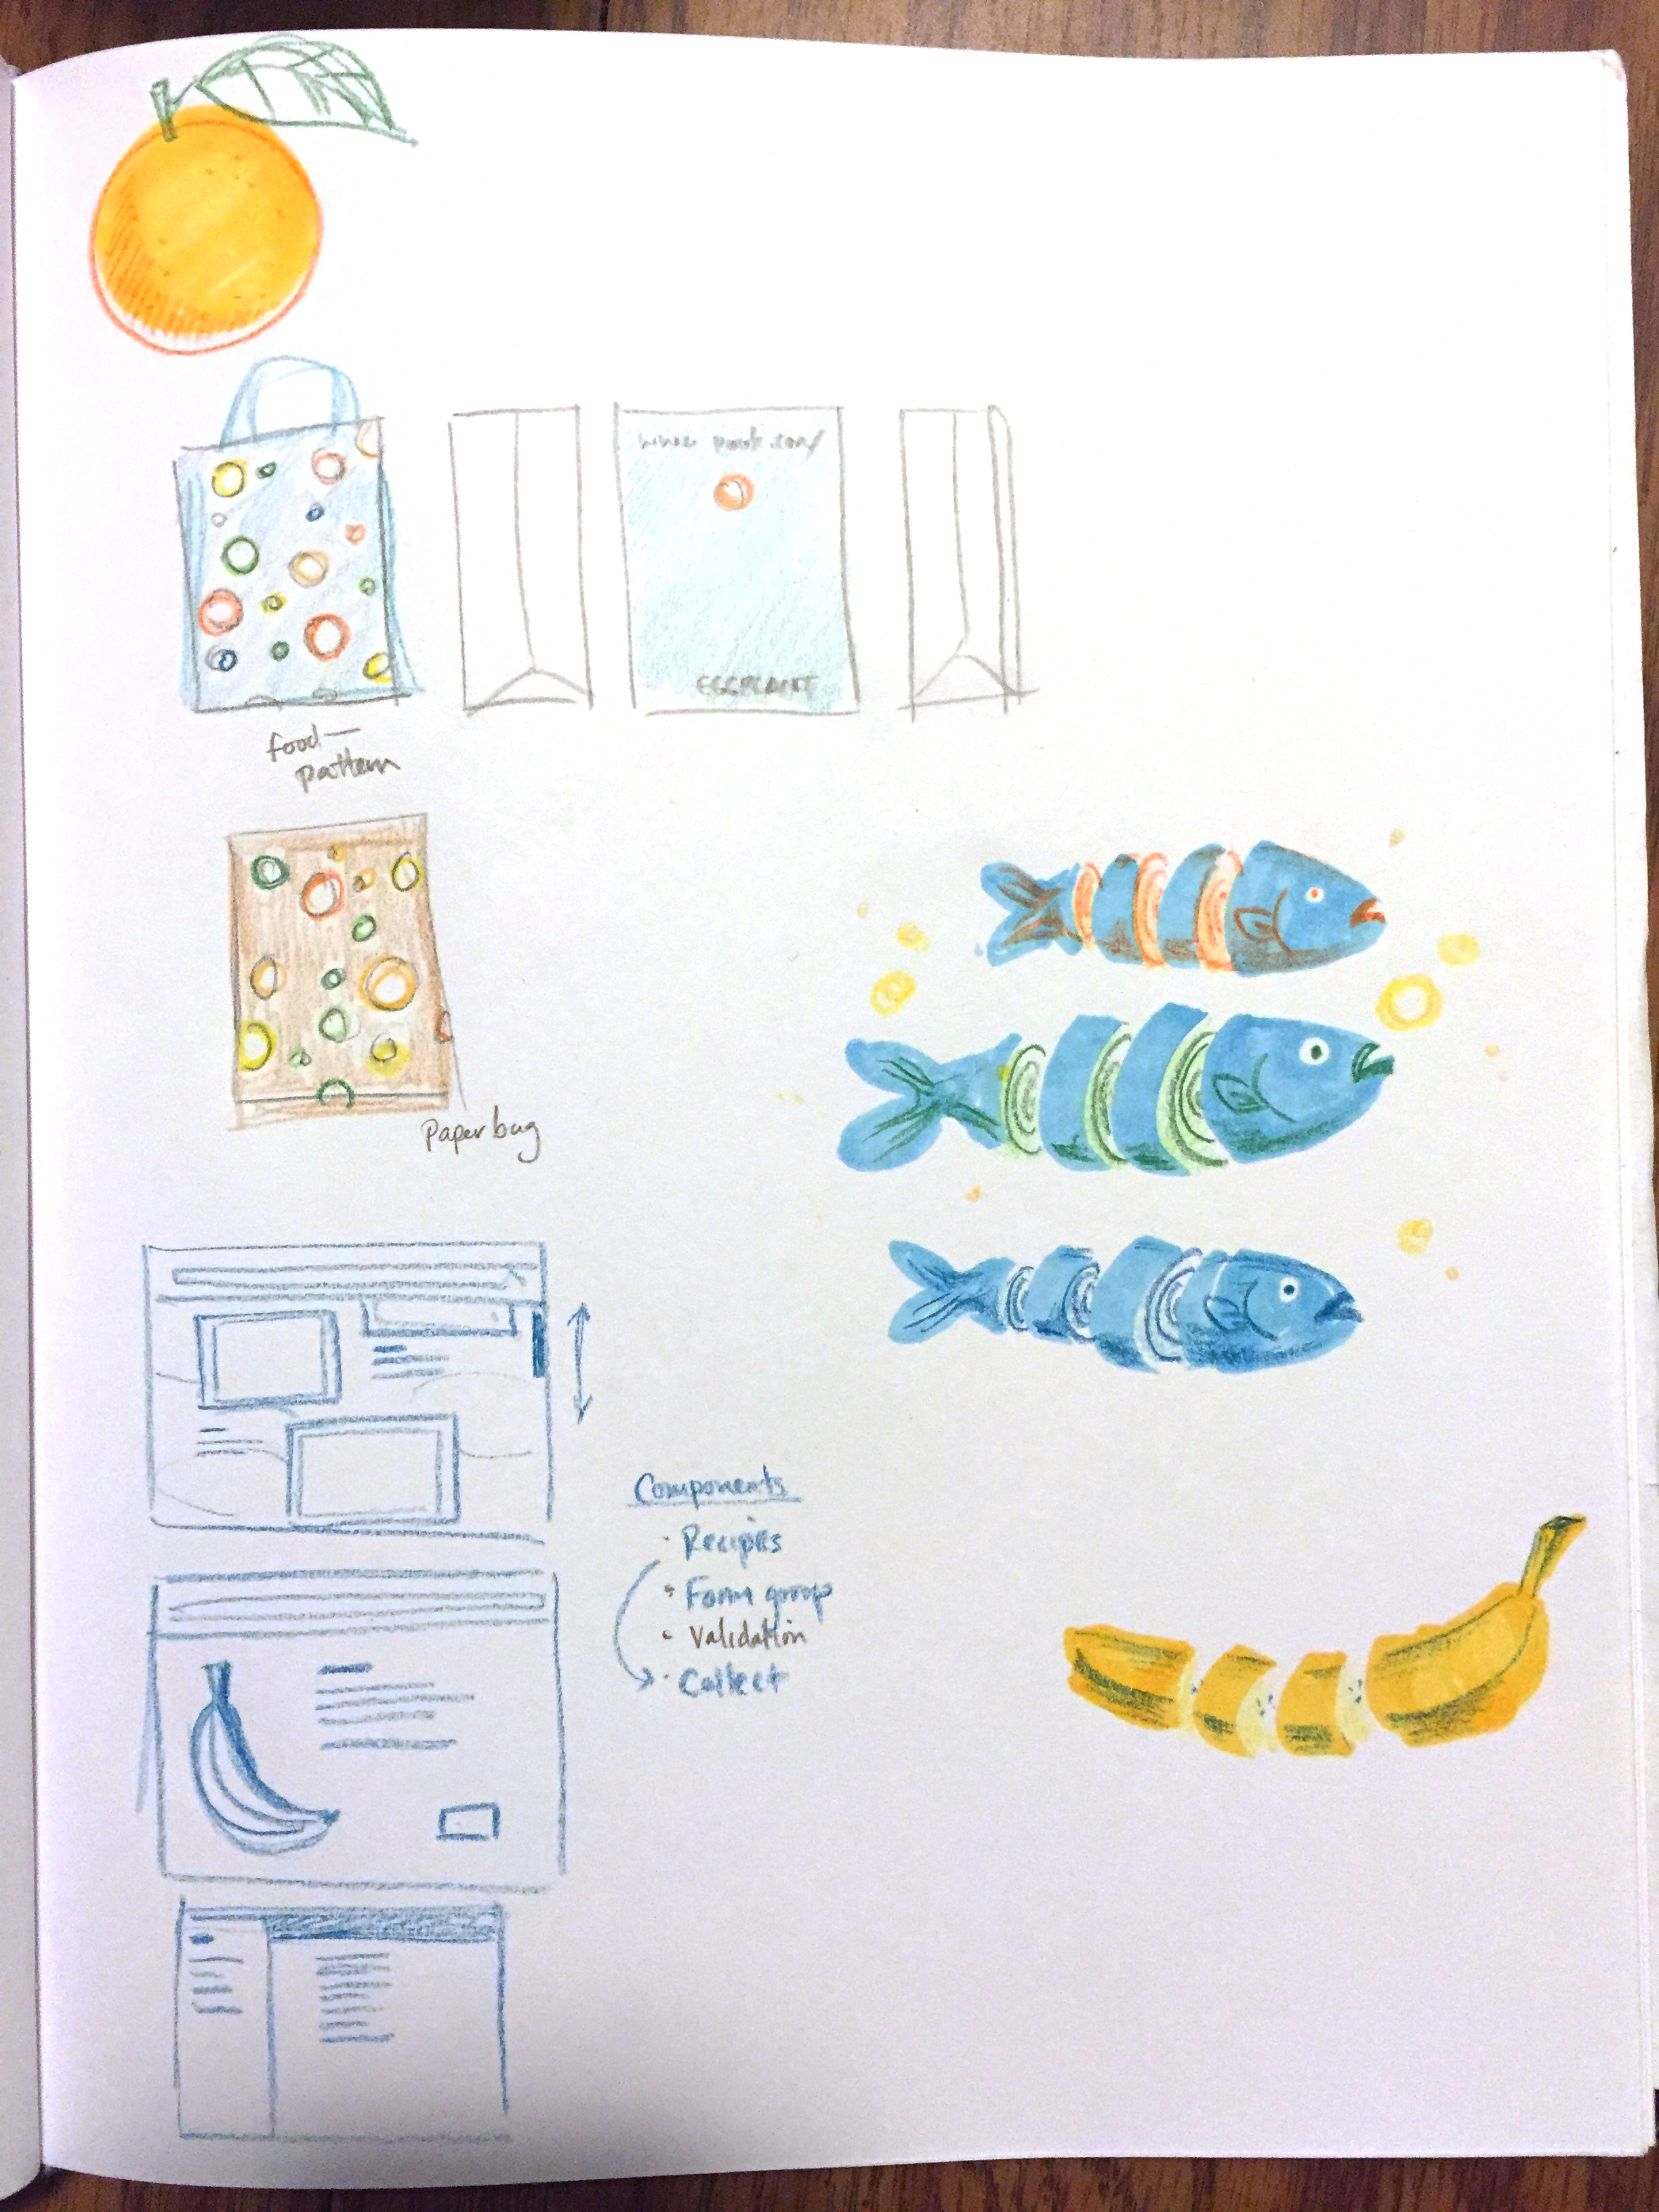 EGGPLANT
food—
pattern
Paper bag
Components
· Recipes
· Form group
· Validation
· Collect